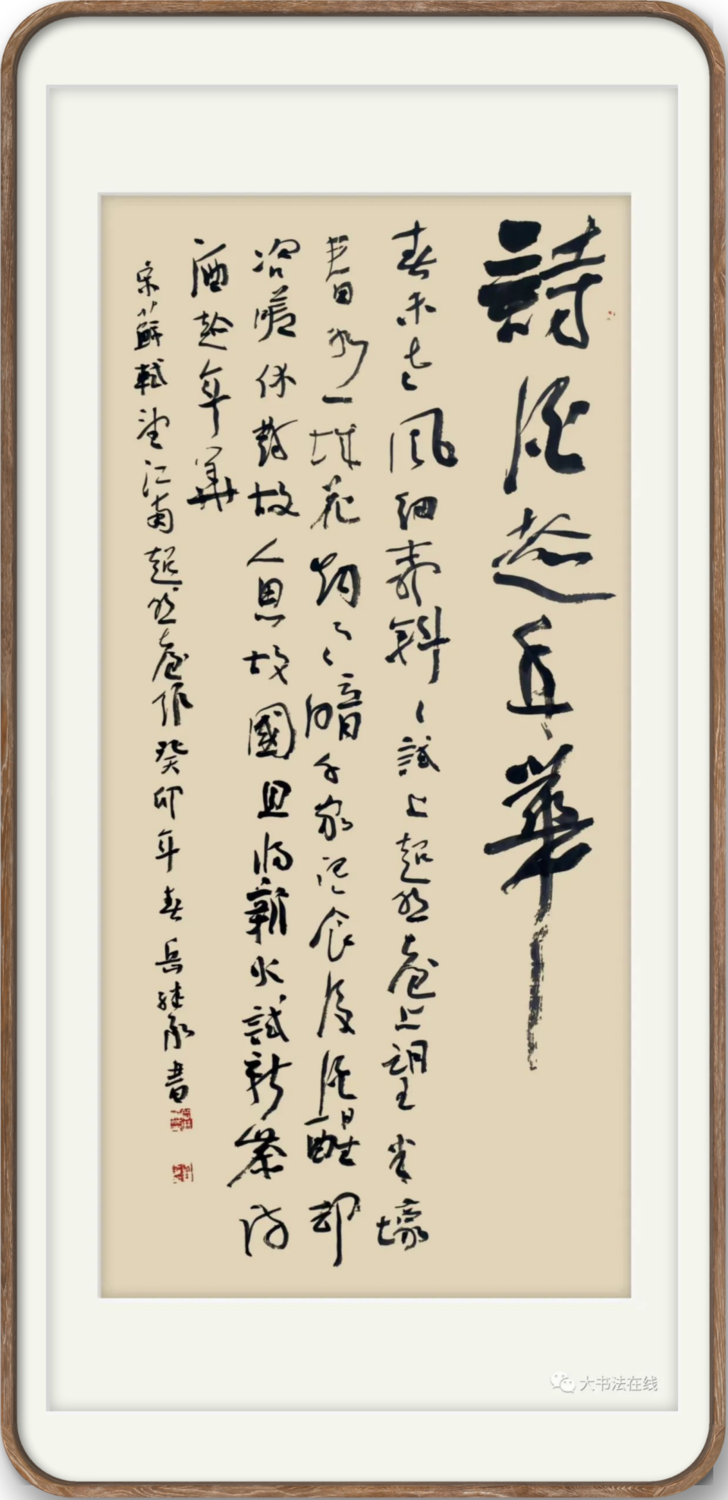 詩酒趁年華
春未老風細柳斜〻試上超然臺上望半壕
春水一城花烟雨暗千家寒食後酒醒却
咨嗟休對故人思故國且將新火試新茶詩
酒趁年華
宋蘇軾望江南超然臺作癸卯年春岳继承書
大书法在线